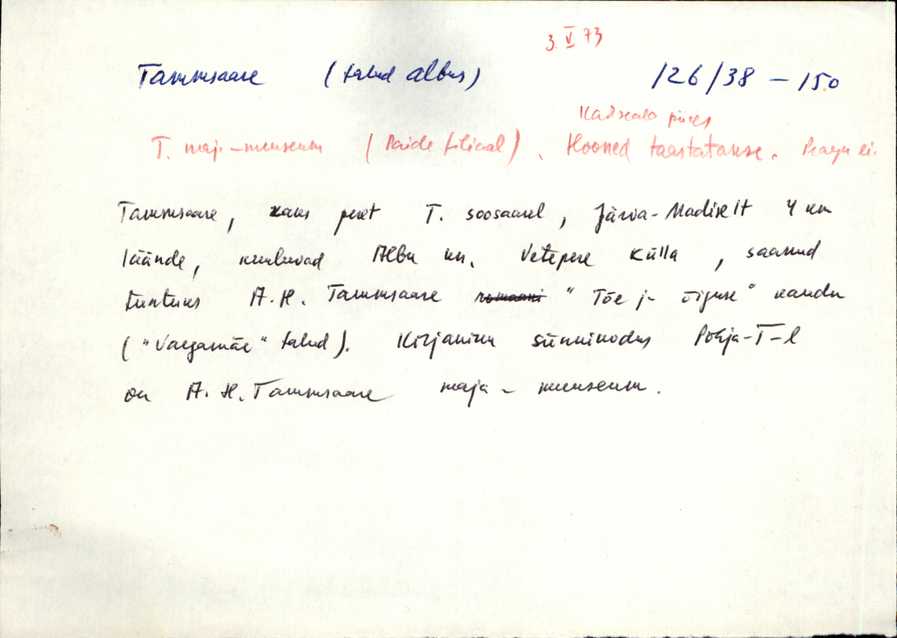 3. V 73
Tammsaare (talud Albus) 126/38 - 150
piires
T. maja-muuseum (Paide filiaal). Hooned taastatakse. Praegu ei.
Tammsaare, kaks peret T. soosaarel, Järva-Madiselt 4 km
läände, kuuluvad Albu kn. Vetepere külla, saanud
tuntuks A. H. Tammsaare romaani "Tõe ja õiguse" kaudu
("Vargamäe" talud). Kirjaniku sünnikodus Põhja-T-l
on A. H. Tammsaare maja-muuseum.